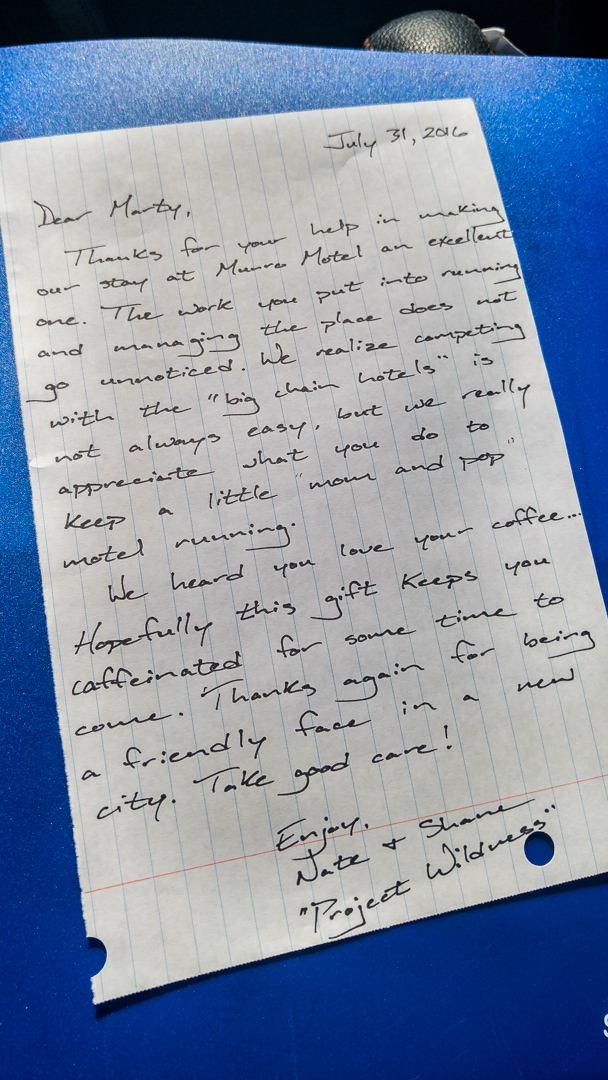 July 31, 2016
Dear Marty,
Thanks for your help in making
our stay at Munro Motel an excellent
one. The work you put into running
and managing the place does not
go unnoticed. We realize competing
with the "big chain hotels" is
not always easy, but we really
appreciate what you do to
keep a little "mom and pop"
motel running.
We heard you love your coffee...
Hopefully this gift keeps you
caffeinated for some time to
come. Thanks again for being
a friendly face in a new
city. Take good care!
Enjoy,
Nate + Shane
"Project Wildness"